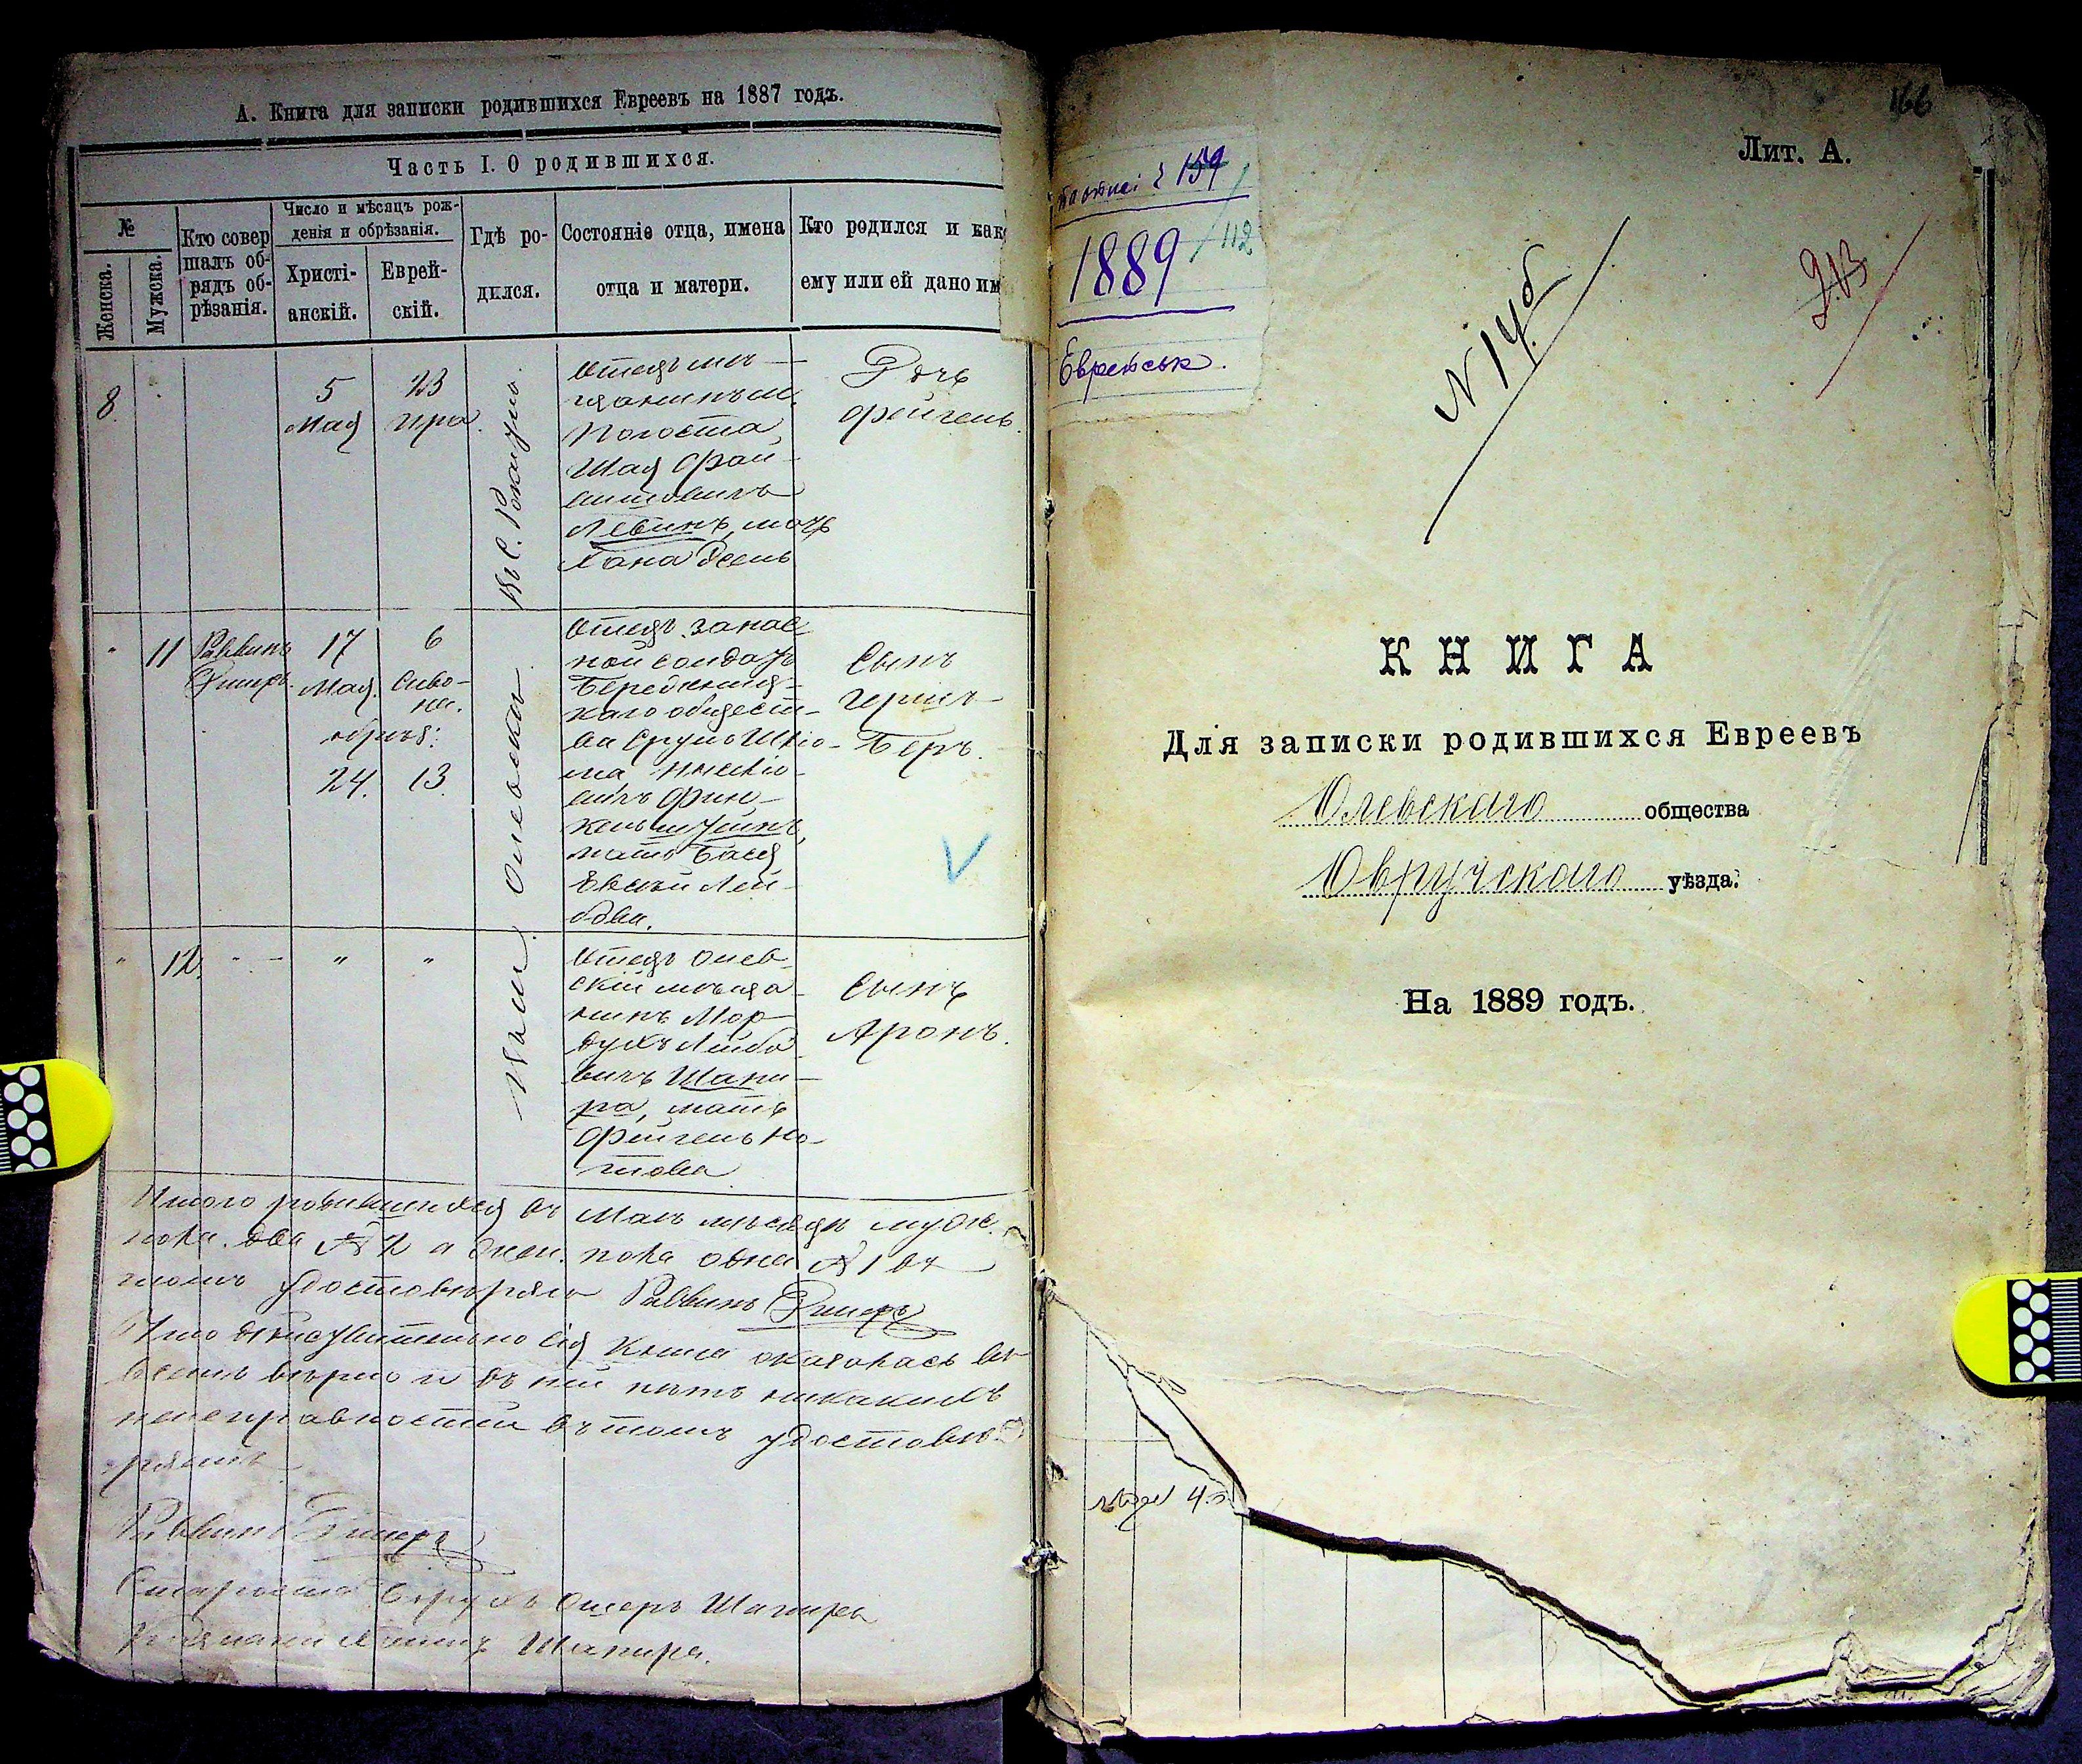 А. Книга для записки родившихся Евреевъ на 1887 годъ.
Часть I. О родившихся.
№
Женска.
Мужска.
Кто совер
шалъ об-
рядъ об-
рѣзанія.
Число и мѣсяцъ рож-
денія и обрѣзанія.
Христі-
анскій.
Еврей-
скій.
Гдѣ ро-
дился.
Состояніе отца, имена
отца и матери.
Кто родился и как
ему или ей дано им
8
5
Мая
23
Ира
Въ С.
Отецъ мѣ-
щанинъ м.
Погоста,
Шая Фай-
витовичъ
Левинъ, мать
Хана
Дочь
Фейгель
11
Раввинъ
17
Мая
6
Сиво-
на.
обрѣз:
24.
13
Въ м. Олевскѣ
Отецъ запас
ной солдатъ
каго общест-
ва Сруль Шлё-
ма
вичъ Фин-
кельштейнъ,
мать Бася
Лей-
бова.
Сынъ
Герш-
Беръ.
12
Отецъ Олев-
скій мѣща-
нинъ Мор-
духъ Лейбо-
вичъ Шапи-
ра, мать
Фейгель Но-
това
Сынъ
Аронъ.
Итого родившихся въ Маѣ мѣсяцѣ муж.
пола два № 2 а жен. пола одна № 1 въ
томъ удостовѣряю Раввинъ
Что дѣйствительно сія Книга оказалась во
всемъ вѣрно и въ ней нѣтъ никакихъ
неисправностей въ томъ удостовѣ-
ряемъ
Раввинъ
Староста Борухъ Ошеръ Шапира
Казначей Шапира.
166
Лит. А.
159
1
112
1889
Єврейськ.
N 146
213
КНИГА
Для записки родившихся Евреевъ
Олевскаго общества
Овручскаго уѣзда.
На 1889 годъ.